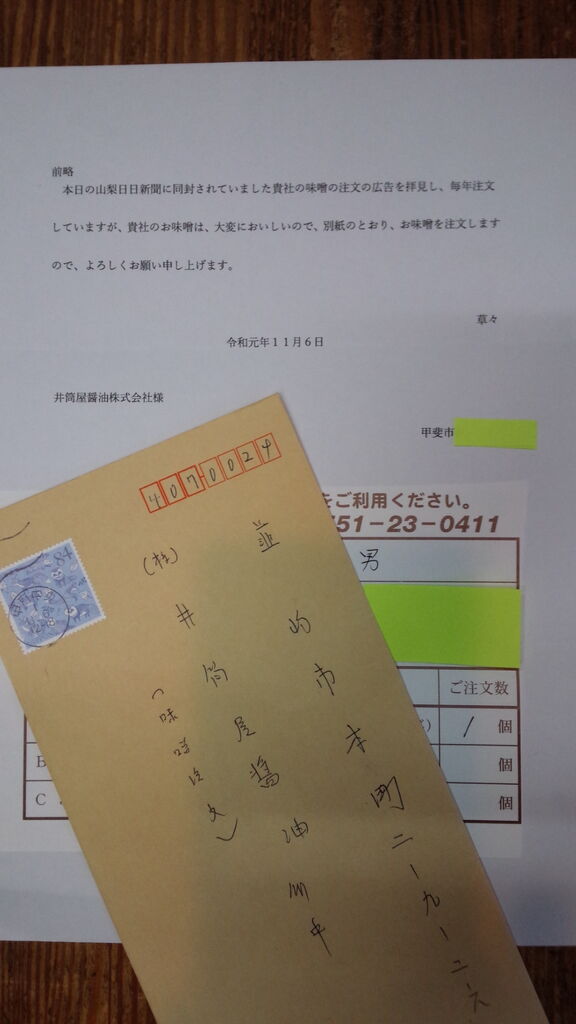 前略
本日の山梨日日新聞に同封されていました貴社の味噌の注文の広告を拝見し、毎年注文
していますが、貴社のお味噌は、大変においしいので、別紙のとおり、お味噌を注文します
ので、よろしくお願い申し上げます。
草々
令和元年１１月６日
井筒屋醤油株式会社様
甲斐市
をご利用ください。
751-23-0411
男
ご注文数
1 個
B 個
C 個
84
4070024
韮崎市本町二ー九ー二
(株)井筒屋醤油御中
(味噌注文)